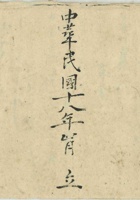 中華民國十八年 月 立